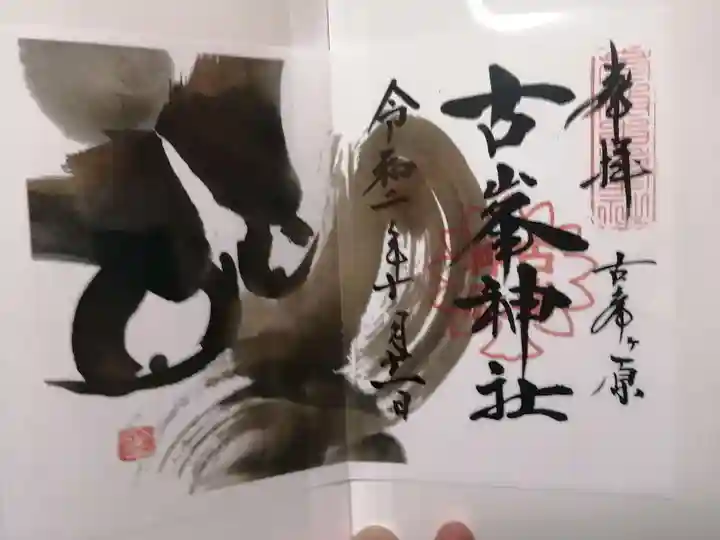 奉拝
古峯ヶ原
古峯神社
令和二年十一月廿一日